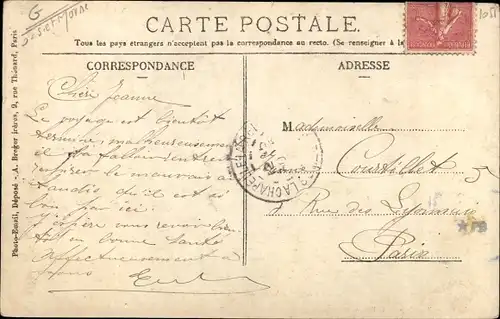 G
CARTE POSTALE.
Tous les pays étrangers n'acceptent pas la correspondance au recto. (Se renseigner à la
CORRESPONDANCE
ADRESSE
Photo-Émail, Déposé - A. Breger frères, 9, rue Thénard, Paris
Chère Jeanne
Le voyage est bientôt
terminé, malheureusement
il a fallu
le mauvais
tandis qu'il est si
bon par ici.
J'espère vous revoir bien
tôt en bonne santé
Affectueusement à
vous
Mademoiselle
Courtillet
Rue des Lyonnais
Paris
LA CHAPELLE